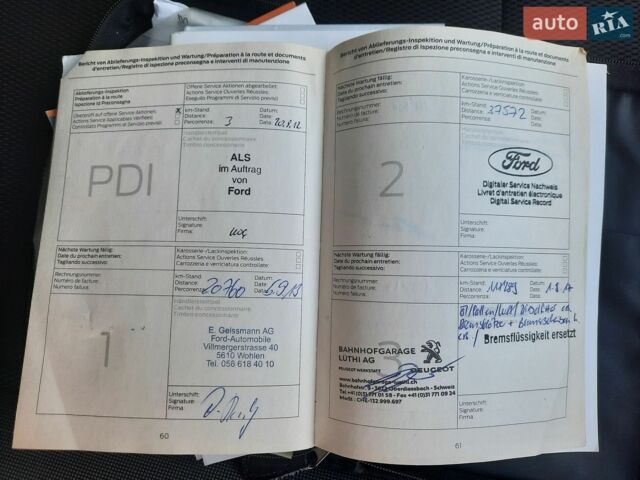 auto RIA .com
Bericht von Ablieferungs-Inspektion und Wartung/Préparation à la route et documents
d'entretien/Registro di ispezione preconsegna e interventi di manutenzione
Ablieferungs-Inspektion
Préparation à la route
Ispezione di Preconsegna
Offene Service Aktionen abgearbeitet:
Actions Service Ouvertes Réussies:
Eseguito Programmi di Servizio previsti
Überprüft auf offene Service Aktionen:
Actions Service Applicables Vérifiées:
Controllato Programmi di Servizio previsti
x
km-Stand:
Distance:
Percorrenza: 3
Datum:
Date:
Data: 20.8.12
PDI
Händlerstempel
Cachet du concessionnaire
Timbro concessionario
ALS
im Auftrag
von
Ford
Unterschrift:
Signature:
Firma:
Nächste Wartung fällig:
Date du prochain entretien:
Tagliando successivo:
Karosserie-/Lackinspektion:
Actions Service Ouvertes Réussies:
Carrozzeria e verniciatura controllate:
Rechnungsnummer:
Numéro de facture:
Numero fattura:
km-Stand:
Distance:
Percorrenza: 20760
Datum:
Date:
Data: 6.9.13
1
Händlerstempel
Cachet du concessionnaire
Timbro concessionario
E. Geissmann AG
Ford-Automobile
Villmergerstrasse 40
5610 Wohlen
Tel. 056 618 40 10
Unterschrift:
Signature:
Firma:
60
Bericht von Ablieferungs-Inspektion und Wartung/Préparation à la route et documents
d'entretien/Registro di ispezione preconsegna e interventi di manutenzione
Nächste Wartung fällig:
Date du prochain entretien:
Tagliando successivo:
Karosserie-/Lackinspektion:
Actions Service Ouvertes Réussies:
Carrozzeria e verniciatura controllate:
Rechnungsnummer:
Numéro de facture:
Numero fattura:
km-Stand:
Distance: 27572
Percorrenza:
Datum:
Date:
Data:
2
Ford
Digitaler Service Nachweis
Livret d'entretien électronique
Digital Service Record
Unterschrift:
Signature:
Firma:
Nächste Wartung fällig:
Date du prochain entretien:
Tagliando successivo:
Karosserie-/Lackinspektion:
Actions Service Ouvertes Réussies:
Carrozzeria e verniciatura controllate:
Rechnungsnummer:
Numéro de facture:
Numero fattura:
km-Stand:
Distance:
Percorrenza:
Datum:
Date:
Data:
3
Bremsflüssigkeit ersetzt
BAHNHOFGARAGE
LÜTHI AG
PEUGEOT WERKSTATT
PEUGEOT
www.bahnhofgarage-luthi.ch
Tel. +41 (0)31 771 01 58 - Fax +41 (0)31 771 09 24
MwSt - CHE-112.999.697
Unterschrift:
Signature:
Firma:
61